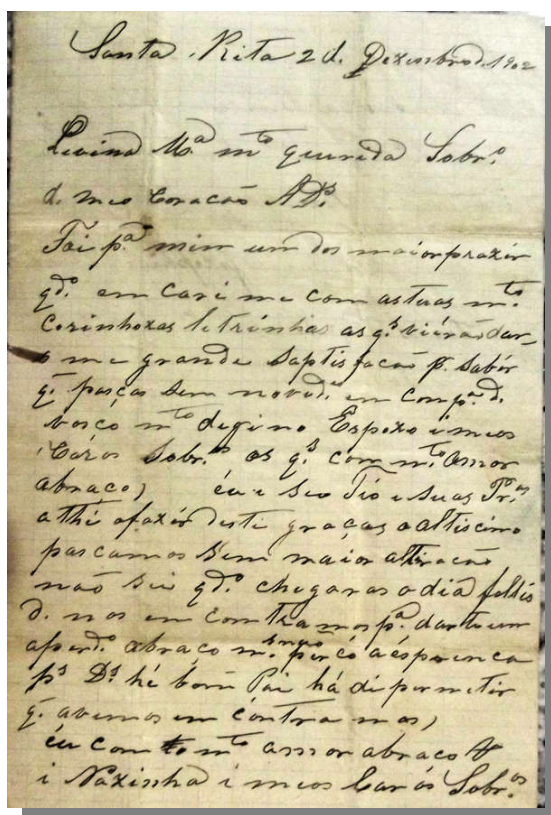 Santa Rita 2 d. Dezembro d. 1902
Levina M.ª m.to querida Sobr.ª
d. meo Coracaõ AD.s
Foi p.ª mim um dos maior prazér
q.do em carei me com as tuas m.to
Corinhozas letrinhas as q.s viéraõ dar,
me grande saptisfacaõ p. sabér
q. paças sem novid.e em comp.ª d.
vosço m.to digino Espozo i meos
Cáros Sobr.os as q.s com m.to amor
abraço) éu e seo Tio e suas Pr.as
athé o fazér desti graças o altisimo
pascamos sem maior altiracaõ
naõ sei q.do chegaras o dia fellis
d. nos en comtramos p.ª dartu um
aperd.o abraço m.s naõ percó a ésperenca
p.s D.s hé bom Pai há di permetir
q. avemos em cóntra mos,
éu com m.to amor abraco
i Nazinha i meos Carós Sobr.os